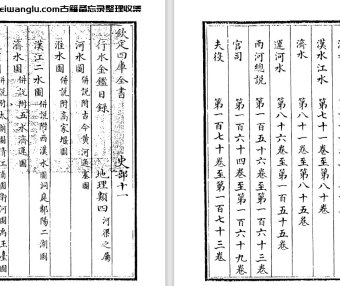 eiwanglu.com古籍备忘录整理收集
欽定四庫全書
史部十一
行水金鑑目録
地理類四河渠之屬
河水圖併說附古今黃河運塞圖
淮水圖併說附高家堰圖
漢江二水圖併說附西漢水圖洞庭鄱陽二湖圖
濟水圖併說附五水濟運圖
漢水江水
第七十一卷至第八十卷
濟水
第八十一卷至第八十五卷
運河水
第八十六卷至第一百五十五卷
兩河總說
第一百五十六卷至第一百六十三卷
官司
第一百六十四卷至第一百六十九卷
夫役
第一百七十卷至第一百七十三卷